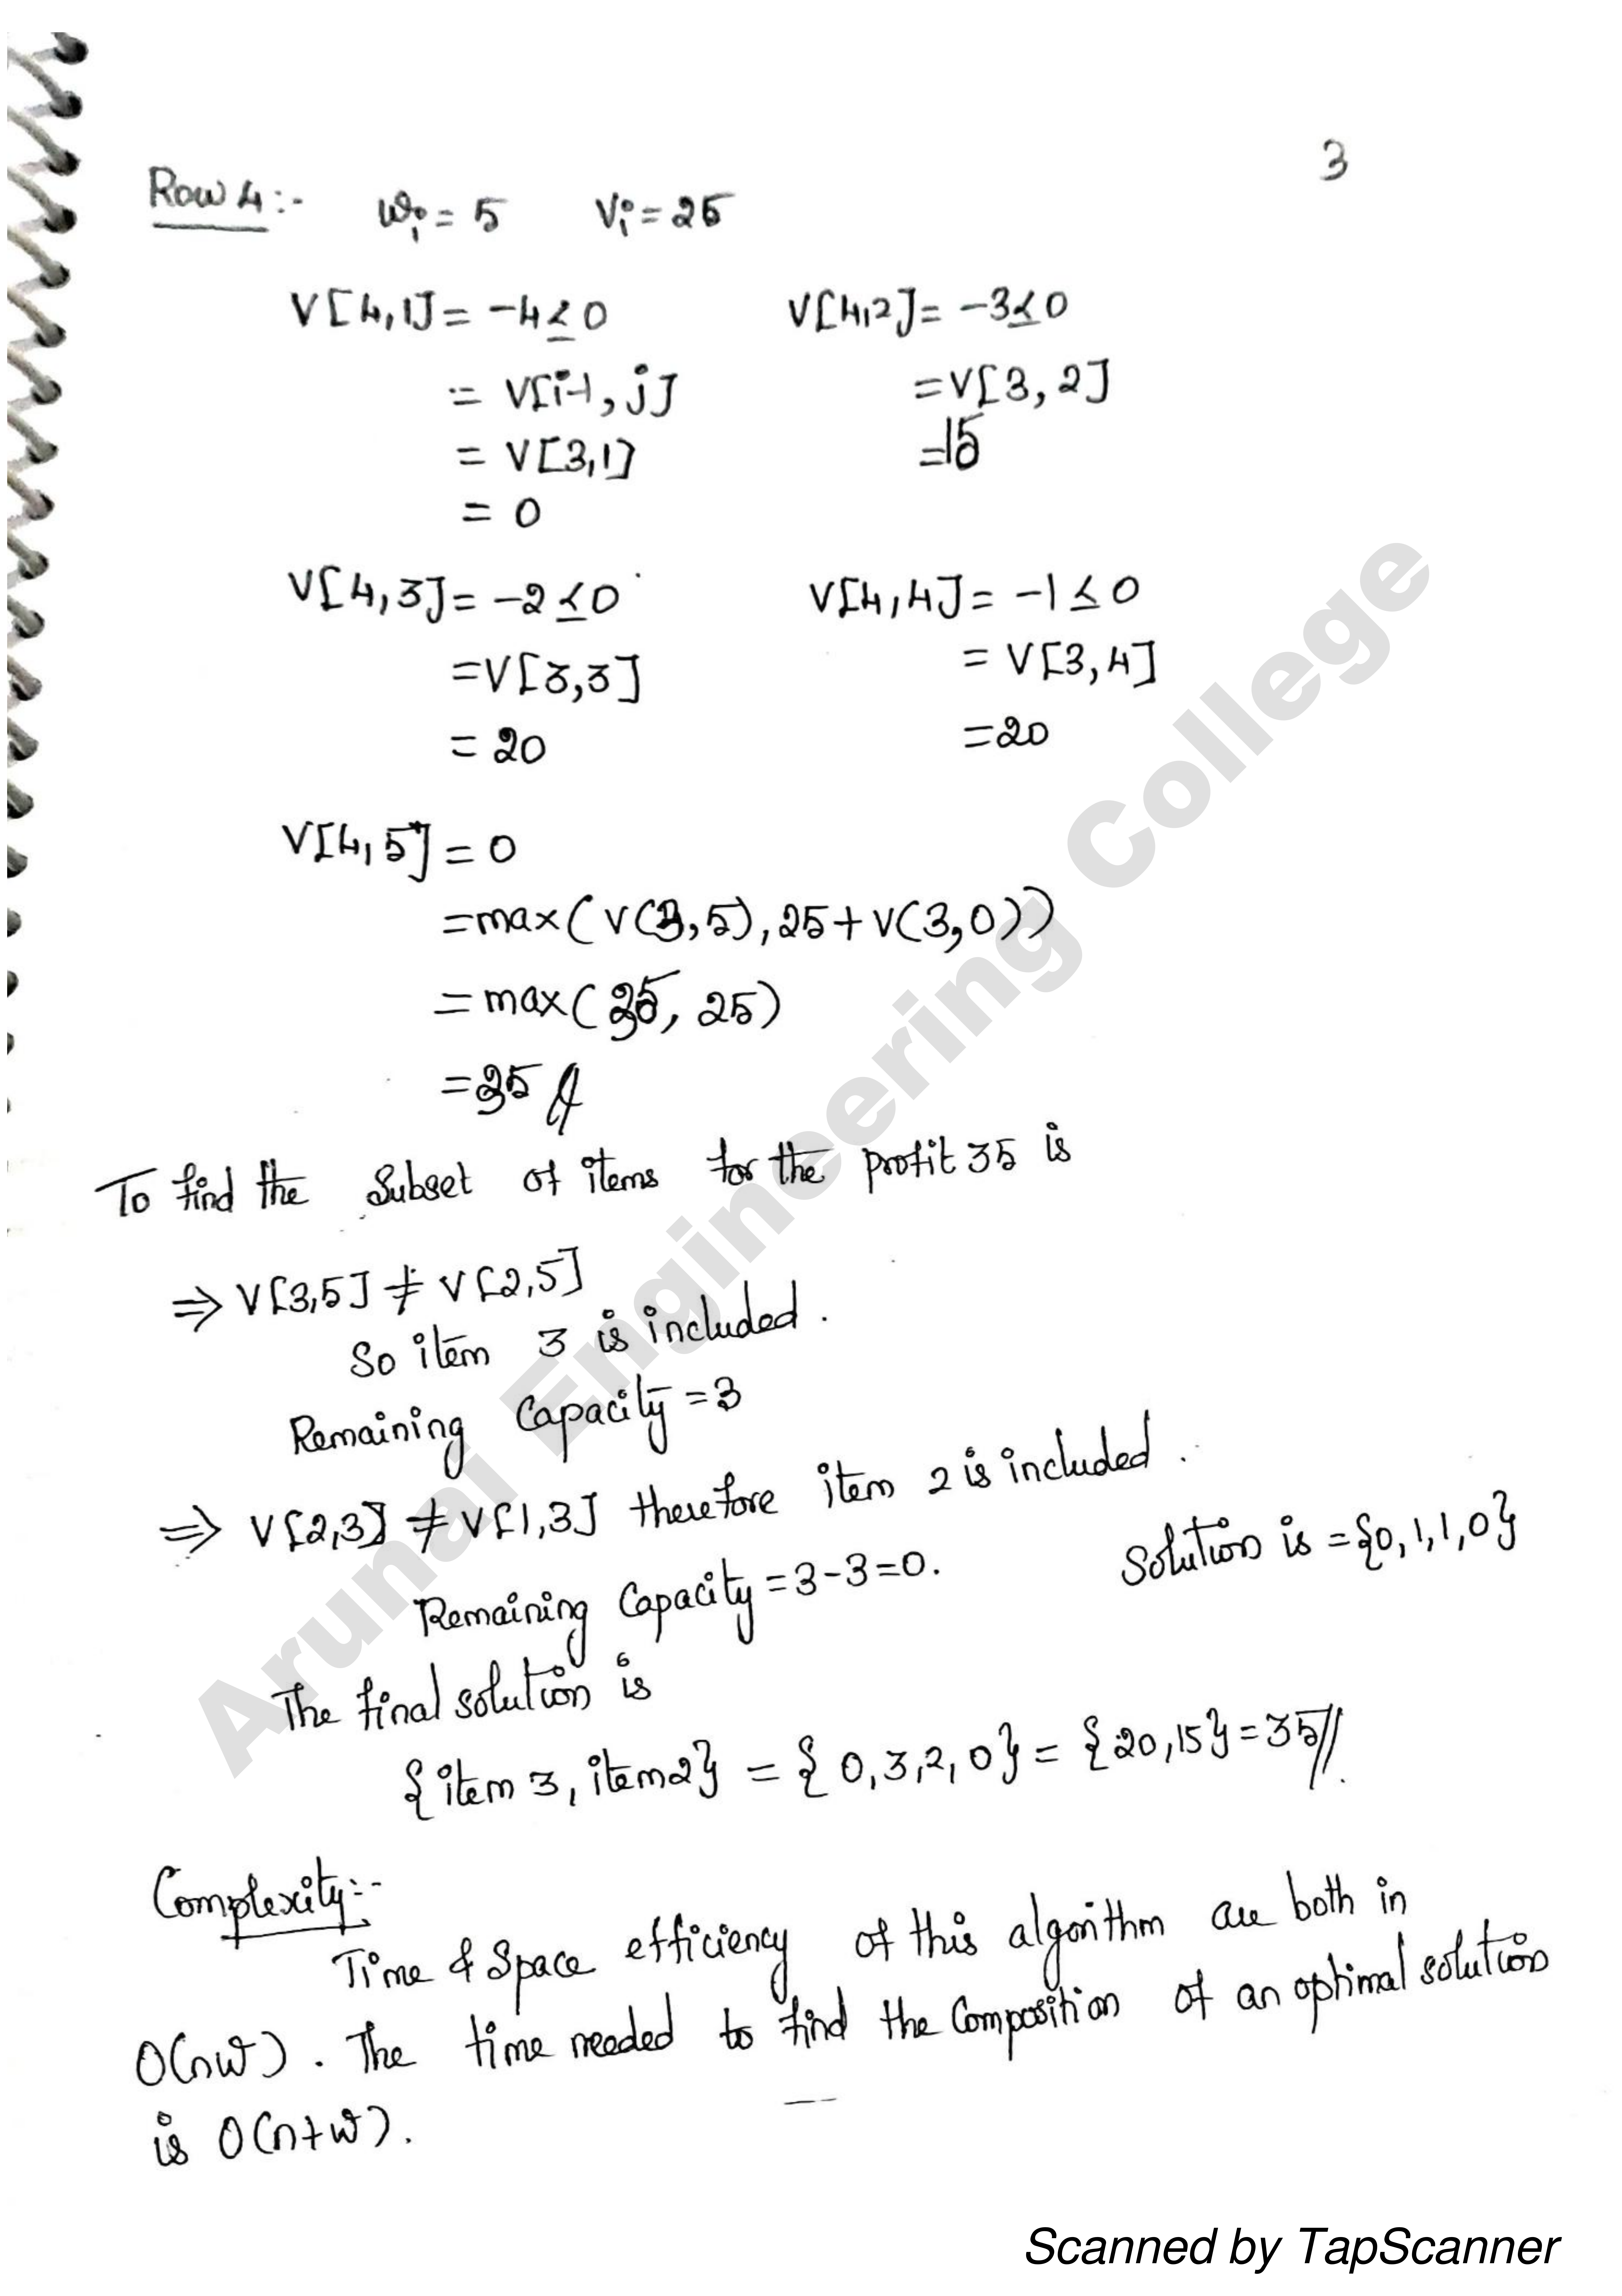 3
Row 4:- wi = 5 Vi = 25
V[4,1] = -4 ≤ 0 V[4,2] = -3 ≤ 0
= V[i-1, j] = V[3, 2]
= V[3,1] = 15
= 0
V[4,3] = -2 ≤ 0 V[4,4] = -1 ≤ 0
= V[3,3] = V[3,4]
= 20 = 20
V[4,5] = 0
= max(V(3,5), 25+V(3,0))
= max(35, 25)
= 35 //
To find the Subset of items for the profit 35 is
⇒ V[3,5] ≠ V[2,5]
So item 3 is included.
Remaining Capacity = 3
⇒ V[2,3] ≠ V[1,3] therefore item 2 is included.
Remaining Capacity = 3-3=0. Solution is = {0,1,1,0}
The final solution is
{item 3, item2} = {0,3,2,0} = {20,15} = 35//.
Complexity:-
Time & Space efficiency of this algorithm are both in
O(nw). The time needed to find the Composition of an optimal solution
is O(n+w).
Arunai Engineering College
Scanned by TapScanner